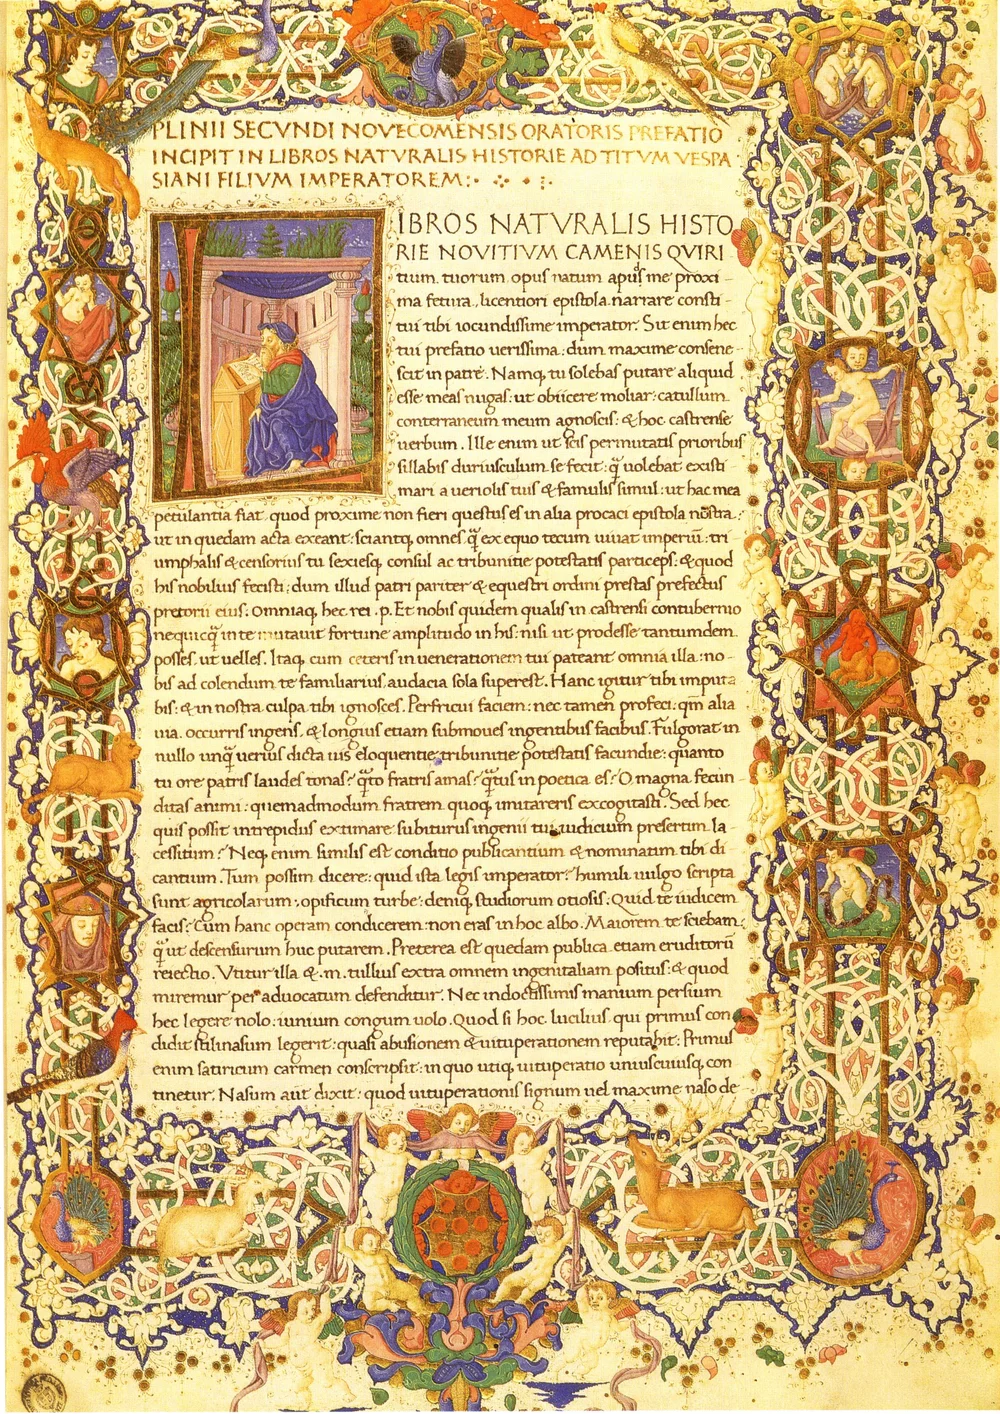 PLINII SECVNDI NOVECOMENSIS ORATORIS PREFATIO
INCIPIT IN LIBROS NATVRALIS HISTORIE AD TITVM VESPA
SIANI FILIVM IMPERATOREM:
LIBROS NATVRALIS HISTO
RIE NOVITIVM CAMENIS QVIRI
tium tuorum opus natum apud me proxi-
ma fetura, licentiori epistola narrare consti-
tui tibi iocundissime imperator. Sit enim hec
tui prefatio uerissima: dum maxime consene-
scit in patre. Namq tu solebas putare aliquid
esse meas nugas: ut obiicere moliar: catullum
conterraneum meum agnoscis: & hoc castrense
uerbum. Ille enim ut scis permutatis prioribus
sillabis duriusculum se fecit: q̃ uolebat existi-
mari a ueriolis tuis & famulis simul: ut hac mea
petulantia fiat, quod proxime non fieri questus es in alia procaci epistola nostra:
ut in quedam acta exeant: sciantq omnes, q̃ ex equo tecum uiuat imperiũ: tri-
umphalis & censorius tu sexiesq consul ac tribunitie potestatis particeps: & quod
his nobilius fecisti: dum illud patri pariter & equestri ordini prestas prefectus
pretorii eius: Omniaq hec rei .p. Et nobis quidem qualis in castrensi contubernio
nequicq̃ in te mutauit fortune amplitudo in his: nisi ut prodesse tantumdem
posses, ut uelles. Itaq cum ceteris in uenerationem tui pateant omnia illa: no-
bis ad colendum te familiarius audacia sola superest. Hanc igitur tibi imputa
bis: & in nostra culpa tibi ignosces. Perfricui faciem: nec tamen profeci: qm̃ alia
uia occurris ingens, & longius etiam submoues ingentibus facibus. Fulgorat in
nullo unq̃ uerius dicta uis eloquentie tribunitie potestatis facundie: quanto
tu ore patris laudes tonas? q̃to fratris amas? q̃tus in poetica es? O magna fecun-
ditas animi: quemadmodum fratrem quoq imitareris excogitasti. Sed hec
quis possit intrepidus extimare subiturus ingenii tui iudicium presertim la-
cessitum? Neq enim similis est conditio publicantium & nominatim tibi di-
cantium. Tum possim dicere: quid ista legis imperator? humili uulgo scripta
sunt agricolarum, opificum turbe: deniq studiorum otiosis: Quid te iudicem
facis? Cum hanc operam condicerem: non eras in hoc albo. Maiorem te sciebam:
q̃ ut descensurum huc putarem. Preterea est quedam publica etiam eruditorũ
reiectio. Vtitur illa & .m. tullius extra omnem ingenii aliam positus: & quod
miremur per aduocatum defenditur. Nec indoctissimis manium persium
hec legere nolo: iunium congum uolo. Quod si hoc lucilius qui primus con
didit stili nasum legerit: quasi abusionem & uituperationem reputabit: Primus
enim satiricum carmen conscripsit: in quo utiq uituperatio uniuscuiusq con
tinetur. Nasum aut dixit: quod uituperationis signum uel maxime naso de